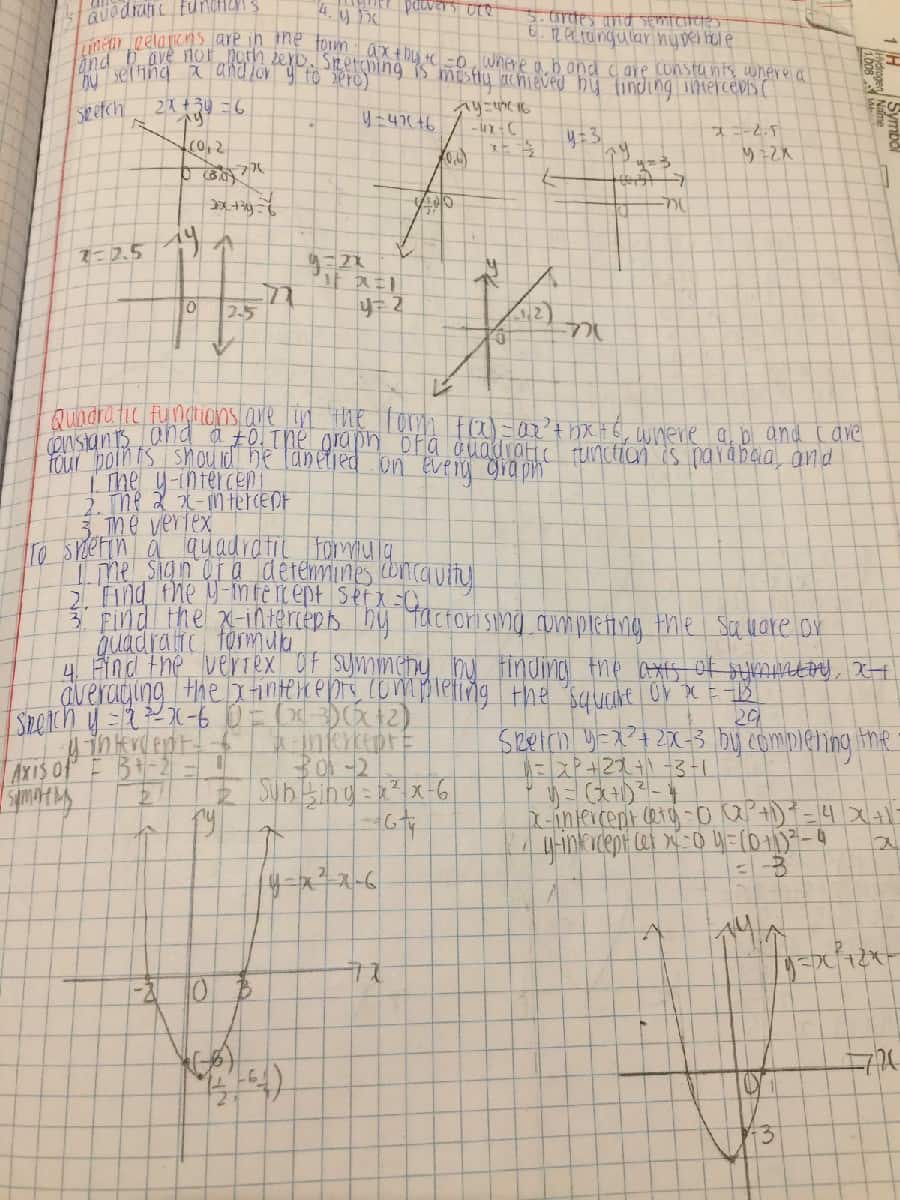 quadratic functions 4. y powers are 5. circles and semicircles
6. Rectangular hyperbole
Linear Relations are in the form ax+by+c=0, where a, b and c are constants where a
and b are not both zero. Sketching is mostly achieved by finding intercepts (
by setting x and/or y to zero)
sketch 2x+3y=6
y=4x+6
y=4x+6
y=3
x=-2.5
y=2x
y
(0,2
0
(3,0)
x
2x+3y=6
(0,6)
0
y
y=3
(0,3)
0
x
x=2.5
y
0
2.5
x
y=2x
if x=1
y=2
y
(1,2)
0
x
Quadratic functions are in the form f(x)=ax²+bx+6, where a, b and c are
constants and a≠0. The graph of a quadratic function is parabaa, and
four points should be labelled on every graph
1. The y-intercept
2. The 2 x-intercept
3. The vertex
To sketch a quadratic formula
1. The sign of a determines concavity
2. Find the y-intercept set x=0
3. Find the x-intercepts by factorising, completing the square or
quadratic formula
4. Find the vertex of symmetry by finding the axis of symmetry, x-i
averaging the x-intercepts, completing the square or x=-b/2a
Sketch y=x²-x-6 0=(x-3)(x+2)
y-intercept=-6 x-intercept=
3 or -2
Axis of symmetry = 3+-2/2 = 1/2
Sub 1/2 in y=x²-x-6
-6 1/4
Sketch y=x²+2x-3 by completing the
y=x²+2x+1-3-1
y=(x+1)²-4
x-intercept let y=0 (x+1)²=4 x+1
y-intercept let x=0 y=(0+1)²-4 x
=-3
y
y=x²-x-6
x
-2 0 3
(-6)
(1/2, -6 1/4)
y
y=x²+2x-
x
0 1
-3
1 H
Hydrogen Name
1.008
Symbol